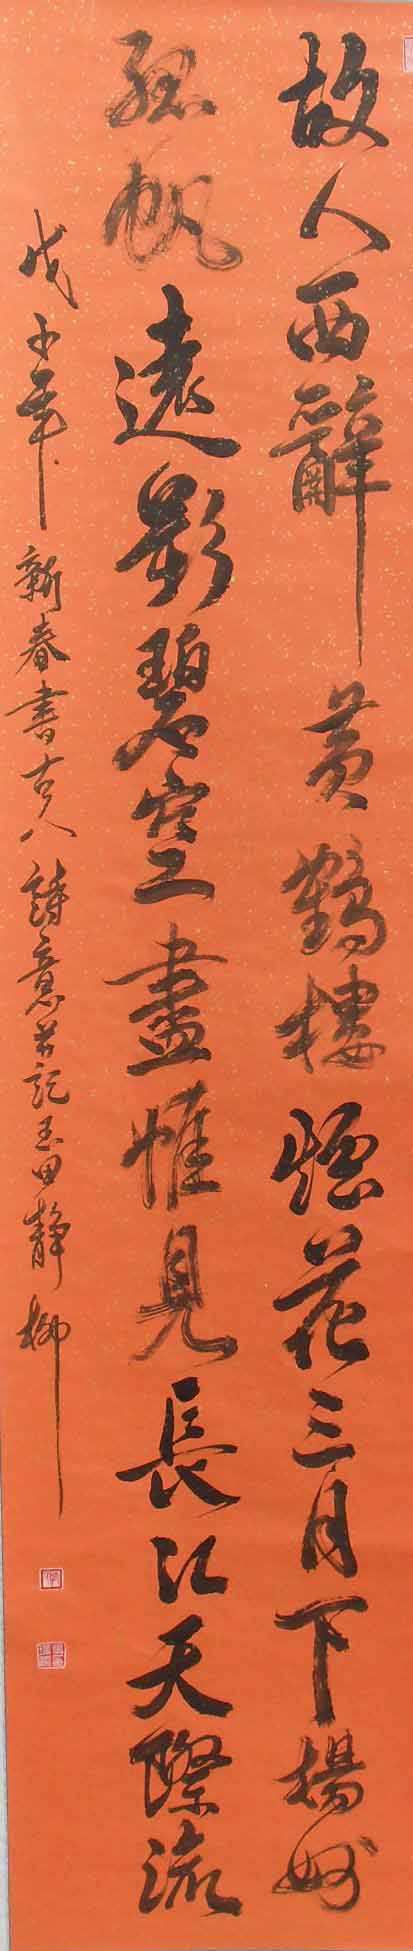 故人西辭黃鶴樓煙花三月下揚州
孤帆遠影碧空盡惟見長江天際流
戊子年新春書古人詩意并記玉田靜柳